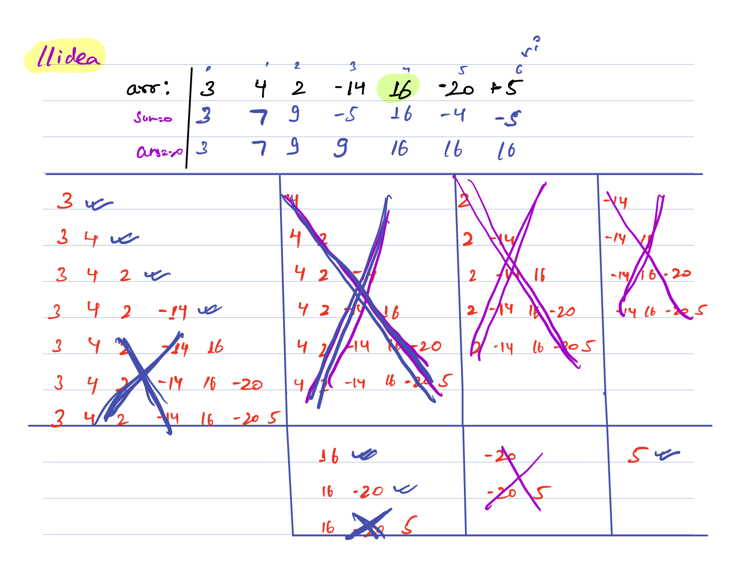 //idea
0 1 2 3 4 5 6
arr: 3 4 2 -14 16 -20 +5
sum=0 3 7 9 -5 16 -4 -5
ans=-∞ 3 7 9 9 16 16 16
3
3 4
3 4 2
3 4 2 -14
3 4 2 -14 16
3 4 2 -14 16 -20
3 4 2 -14 16 -20 5
4
4 2
4 2 -14
4 2 -14 16
4 2 -14 16 -20
4 2 -14 16 -20 5
2
2 -14
2 -14 16
2 -14 16 -20
2 -14 16 -20 5
-14
-14 16
-14 16 -20
-14 16 -20 5
16
16 -20
16 -20 5
-20
-20 5
5